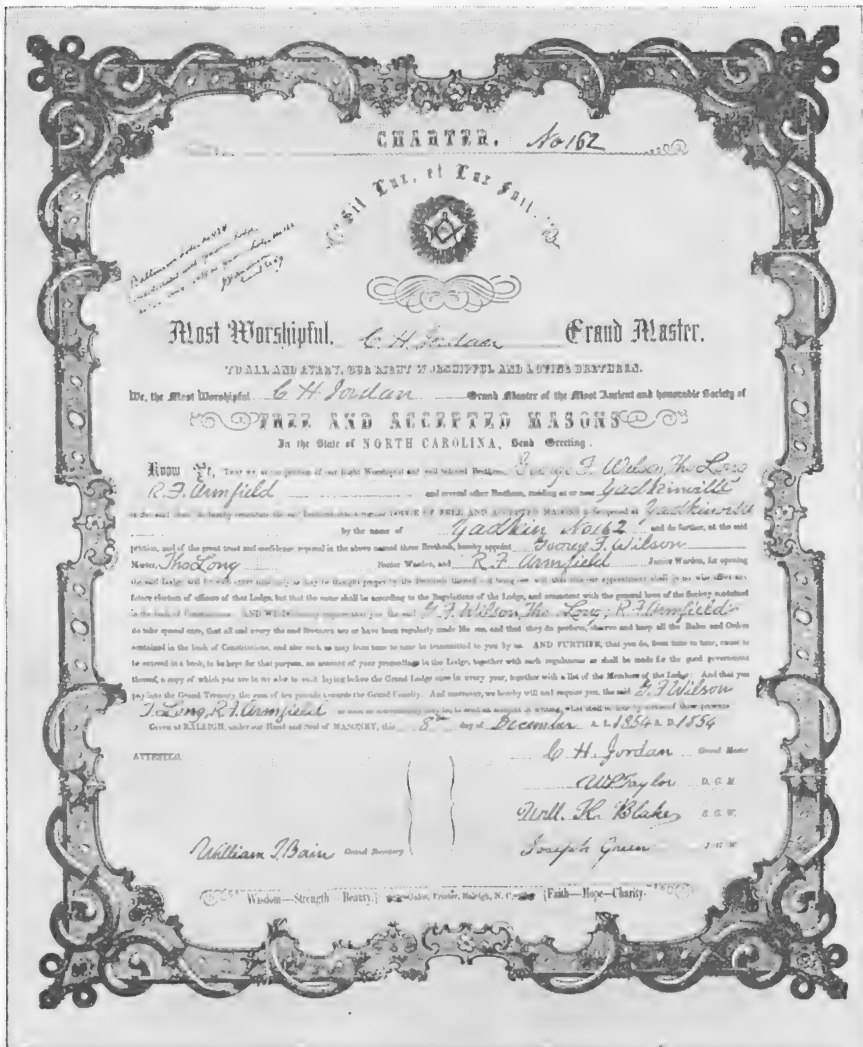 CHARTER. No 162
"Sit Lux, et Lux Fuit."
Most Worshipful, C. H. Jordan Grand Master.
TO ALL AND EVERY, OUR RIGHT WORSHIPFUL AND LOVING BRETHREN.
We, the Most Worshipful C H Jordan Grand Master of the Most Ancient and honorable Society of
FREE AND ACCEPTED MASONS
In the State of NORTH CAROLINA, Send Greeting.
Know Ye, That we, at the petition of our Right Worshipful and well beloved Brethren, George F. Wilson, Tho Long
R. F. Armfield and several other Brethren, residing at or near Yadkinville
in the said State, do hereby constitute the said Brethren into a regular LODGE OF FREE AND ACCEPTED MASONS to be opened at Yadkinville
by the name of Yadkin No 162 and do further, at the said
petition, and of the great trust and confidence reposed in the above named three Brethren, hereby appoint George F. Wilson
Master, Tho Long Senior Warden, and R. F. Armfield Junior Warden, for opening
the said Lodge and for such time only as may be thought proper by the Brethren thereof, it being our will that this our appointment shall in no wise affect any
future election of officers of that Lodge, but that the same shall be according to the Regulations of the Lodge, and consistent with the general laws of the Society contained
in the book of Constitutions. AND WE DO hereby require that you the said G. F. Wilson, Tho. Long, R. F. Armfield
do take special care, that all and every the said Brethren are or have been regularly made Masons, and that they do perform, observe and keep all the Rules and Orders
contained in the book of Constitutions, and also such as may from time to time be transmitted to you by us. AND FURTHER, that you do, from time to time, cause to
be entered in a book, to be kept for that purpose, an account of your proceedings in the Lodge, together with such regulations as shall be made for the good government
thereof, a copy of which you are in no wise to omit laying before the Grand Lodge once in every year, together with a list of the Members of the Lodge: And that you
pay into the Grand Treasury the sum of ten pounds towards the Grand Charity. And moreover, we hereby will and require you, the said G. F. Wilson
T. Long, R. F. Armfield as soon as conveniently may be, to send an account in writing, what shall be done by virtue of these presents
Given at RALEIGH, under our Hand and Seal of MASONRY, this 8th day of December A. L. 1854 A. D. 1854
ATTESTED.
C. H. Jordan Grand Master
Taylor D. G. M.
Will. H. Blake S. G. W.
William T. Bain Grand Secretary
Joseph Green J. G. W.
Wisdom—Strength—Beauty.} Printer, Raleigh, N. C. {Faith—Hope—Charity.